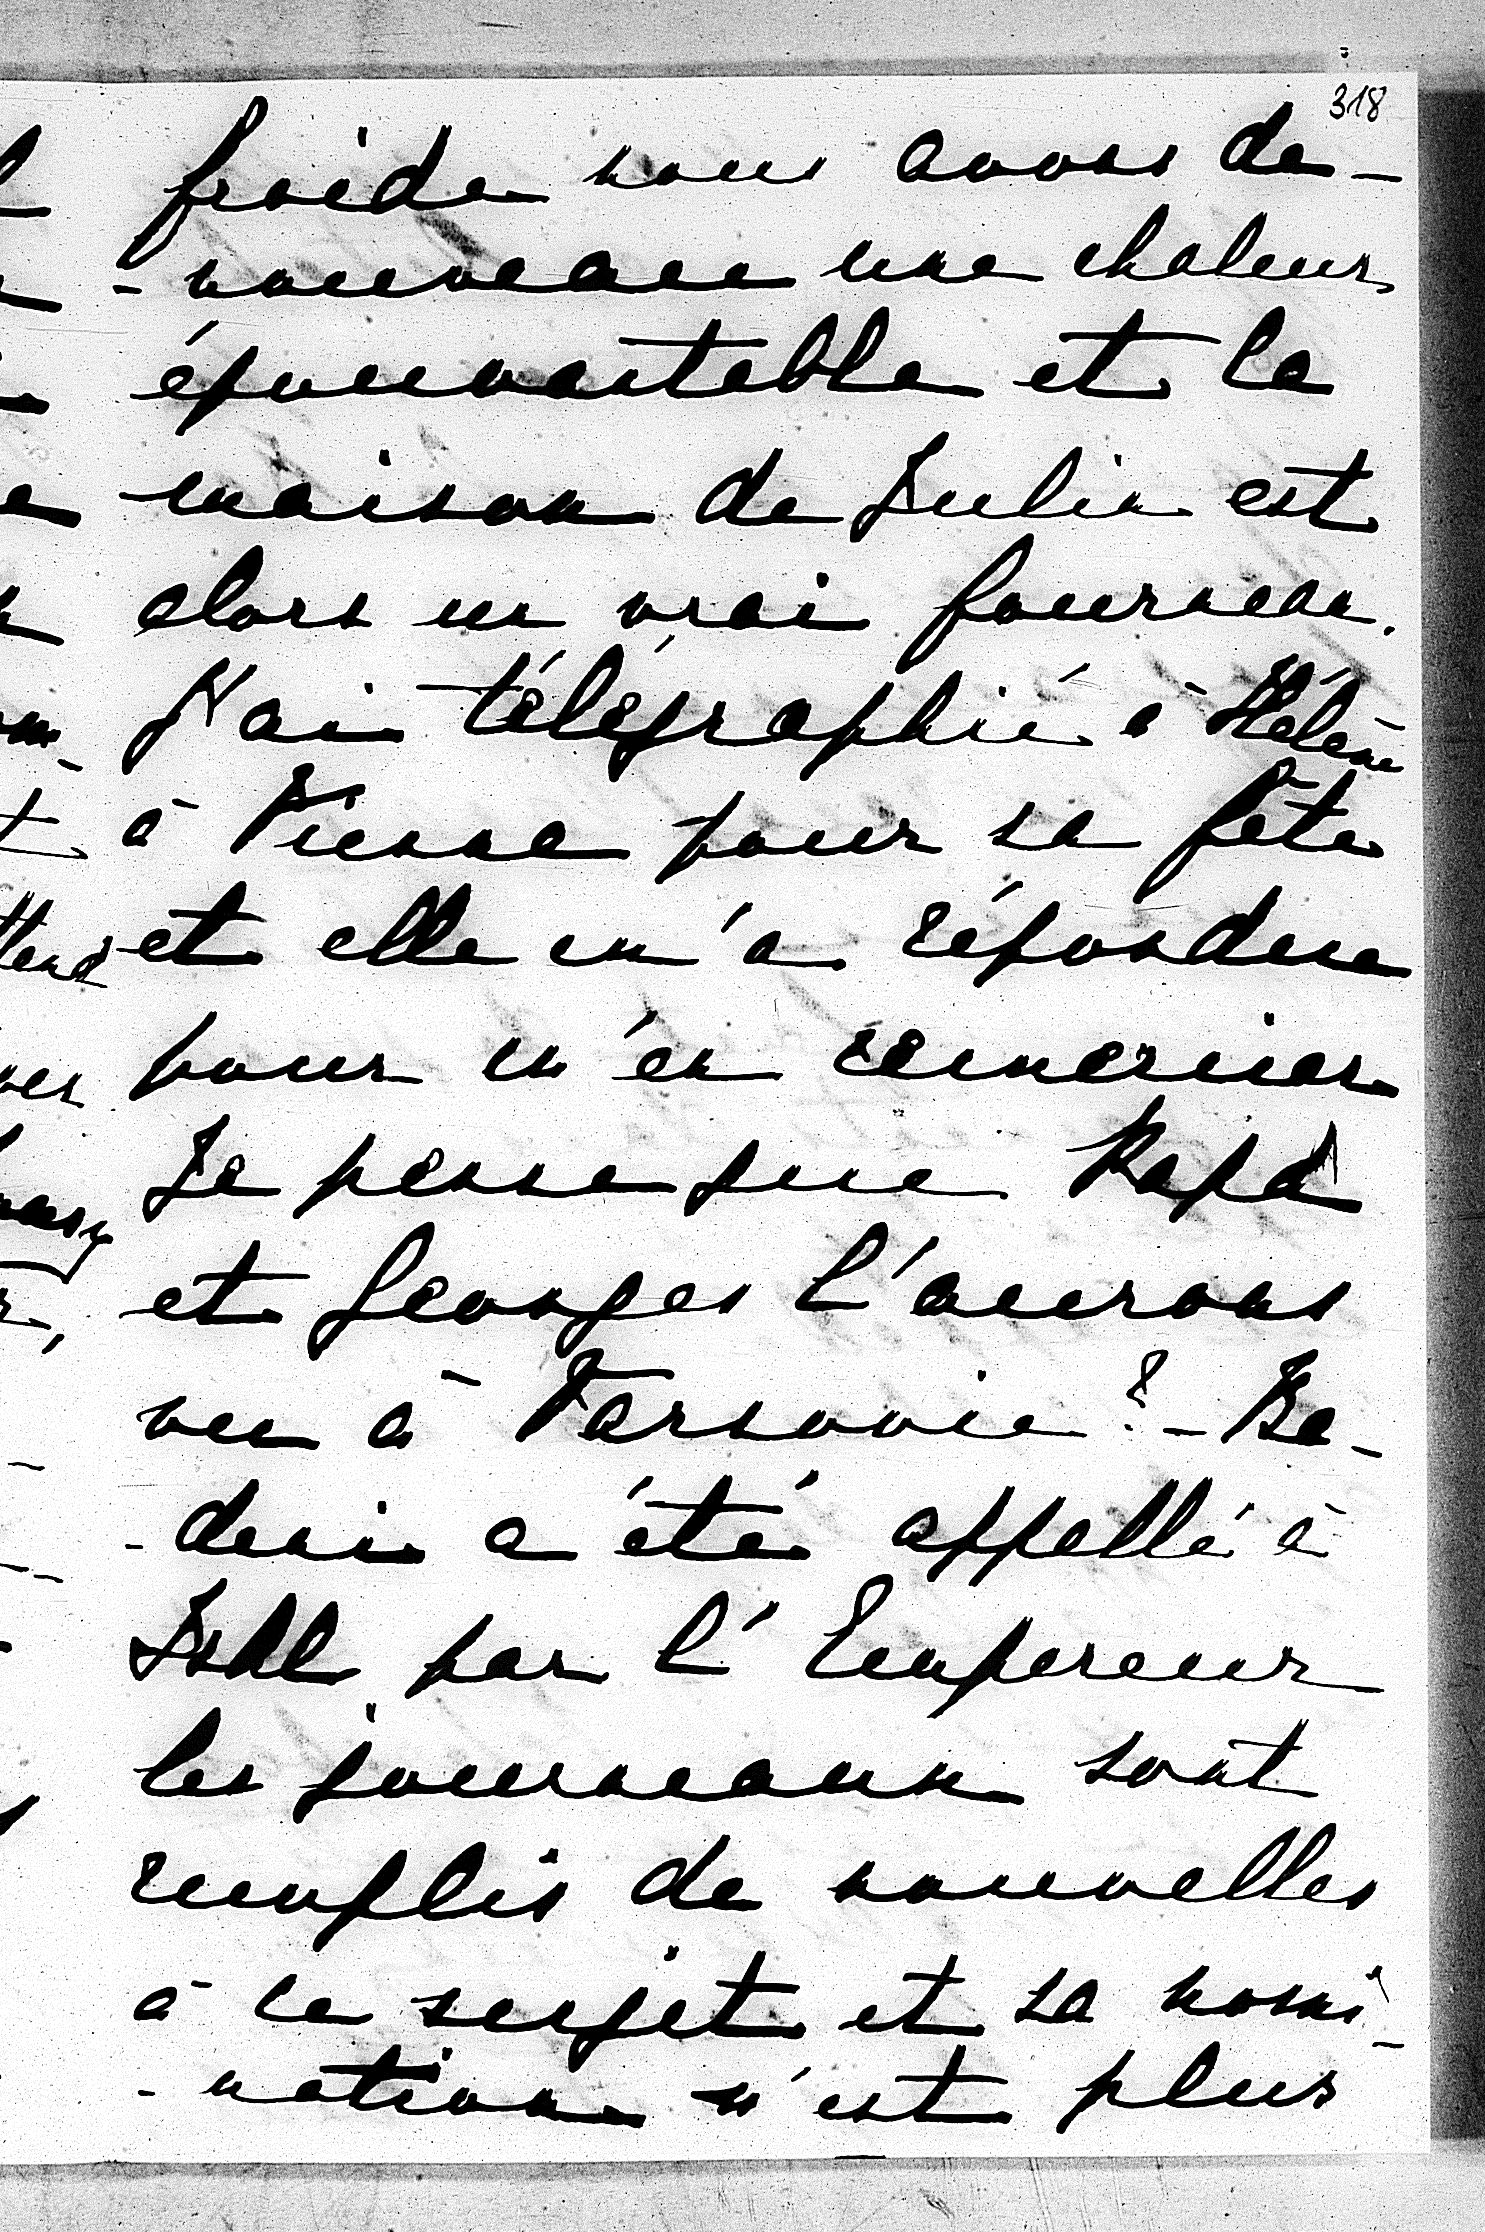 318
froide nous avons de-
-nouveau une chaleur
épouvantable et la
maison de Julin est
alors un vrai fourneau.
J'ai télégraphié à Hélène
à Vienne pour sa fête
et elle m'a répondue
pour m'en remercier
Je pense que Papa
et Georges l'aurons
vu à Varsovie? - Ba-
-deni a été appellé à
Ishl par l'Empereur
les journeaux sont
remplis de nouvelles
à ce sujet et sa nomi-
-nation n'est plus